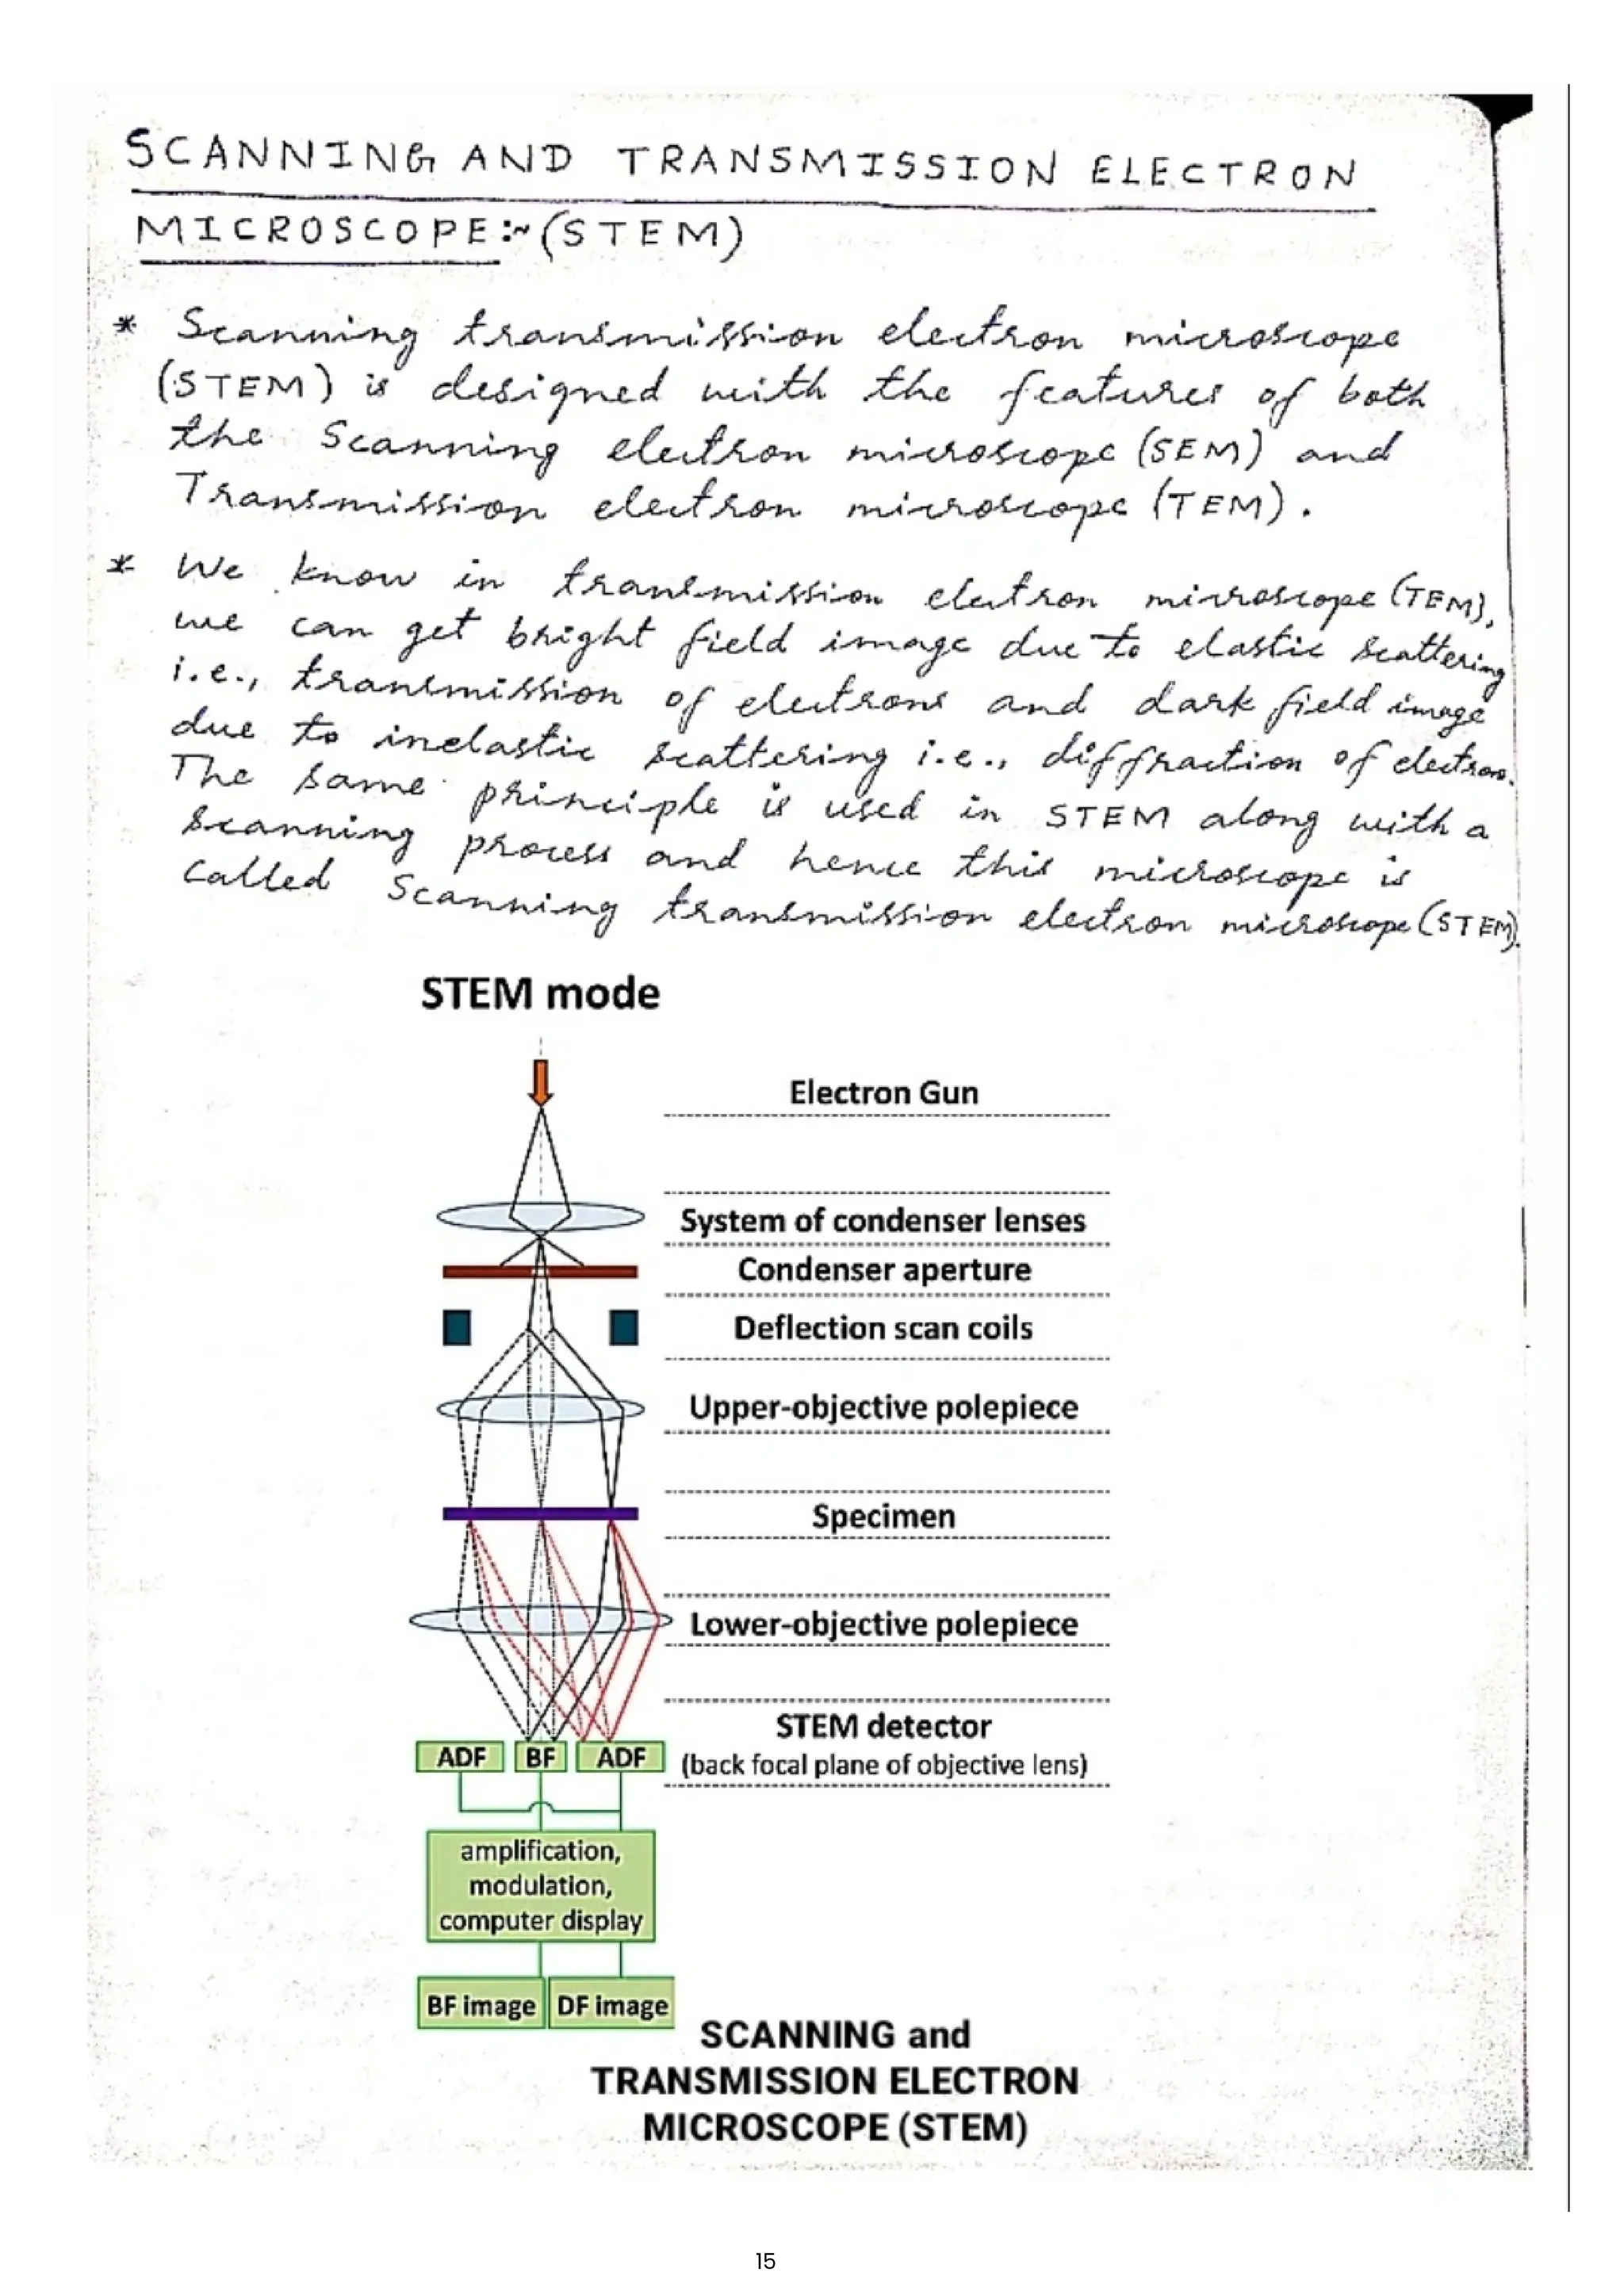 SCANNING AND TRANSMISSION ELECTRON
MICROSCOPE:~(STEM)
* Scanning transmission electron microscope
(STEM) is designed with the features of both
the Scanning electron microscope (SEM) and
Transmission electron microscope (TEM).
* We know in transmission electron microscope (TEM),
we can get bright field image due to elastic scattering
i.e., transmission of electrons and dark field image
due to inelastic scattering i.e., diffraction of electron.
The same principle is used in STEM along with a
scanning process and hence this microscope is
called Scanning transmission electron microscope (STEM).
STEM mode
Electron Gun
System of condenser lenses
Condenser aperture
Deflection scan coils
Upper-objective polepiece
Specimen
Lower-objective polepiece
STEM detector
ADF BF ADF (back focal plane of objective lens)
amplification,
modulation,
computer display
BF image DF image
SCANNING and
TRANSMISSION ELECTRON
MICROSCOPE (STEM)
15